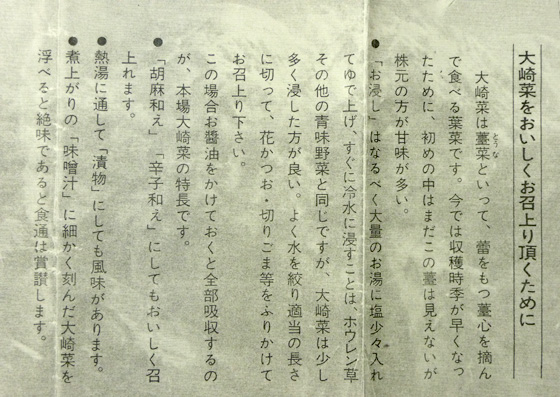 大崎菜をおいしくお召上り頂くために
大崎菜は薹菜といって、蕾をもつ薹心を摘ん
とうな
で食べる葉菜です。今では収穫時季が早くなっ
たために、初めの中はまだこの薹は見えないが
株元の方が甘味が多い。
●「お浸し」はなるべく大量のお湯に塩少々入れ
てゆで上げ、すぐに冷水に浸すことは、ホウレン草
その他の青味野菜と同じですが、大崎菜は少し
多く浸した方が良い。よく水を絞り適当の長さ
に切って、花かつお・切りごま等をふりかけて
お召上り下さい。
この場合お醬油をかけておくと全部吸収するの
が、本場大崎菜の特長です。
●「胡麻和え」「辛子和え」にしてもおいしく召
上れます。
●熱湯に通して「漬物」にしても風味があります。
●煮上がりの「味噌汁」に細かく刻んだ大崎菜を
浮べると絶味であると食通は賞讃します。